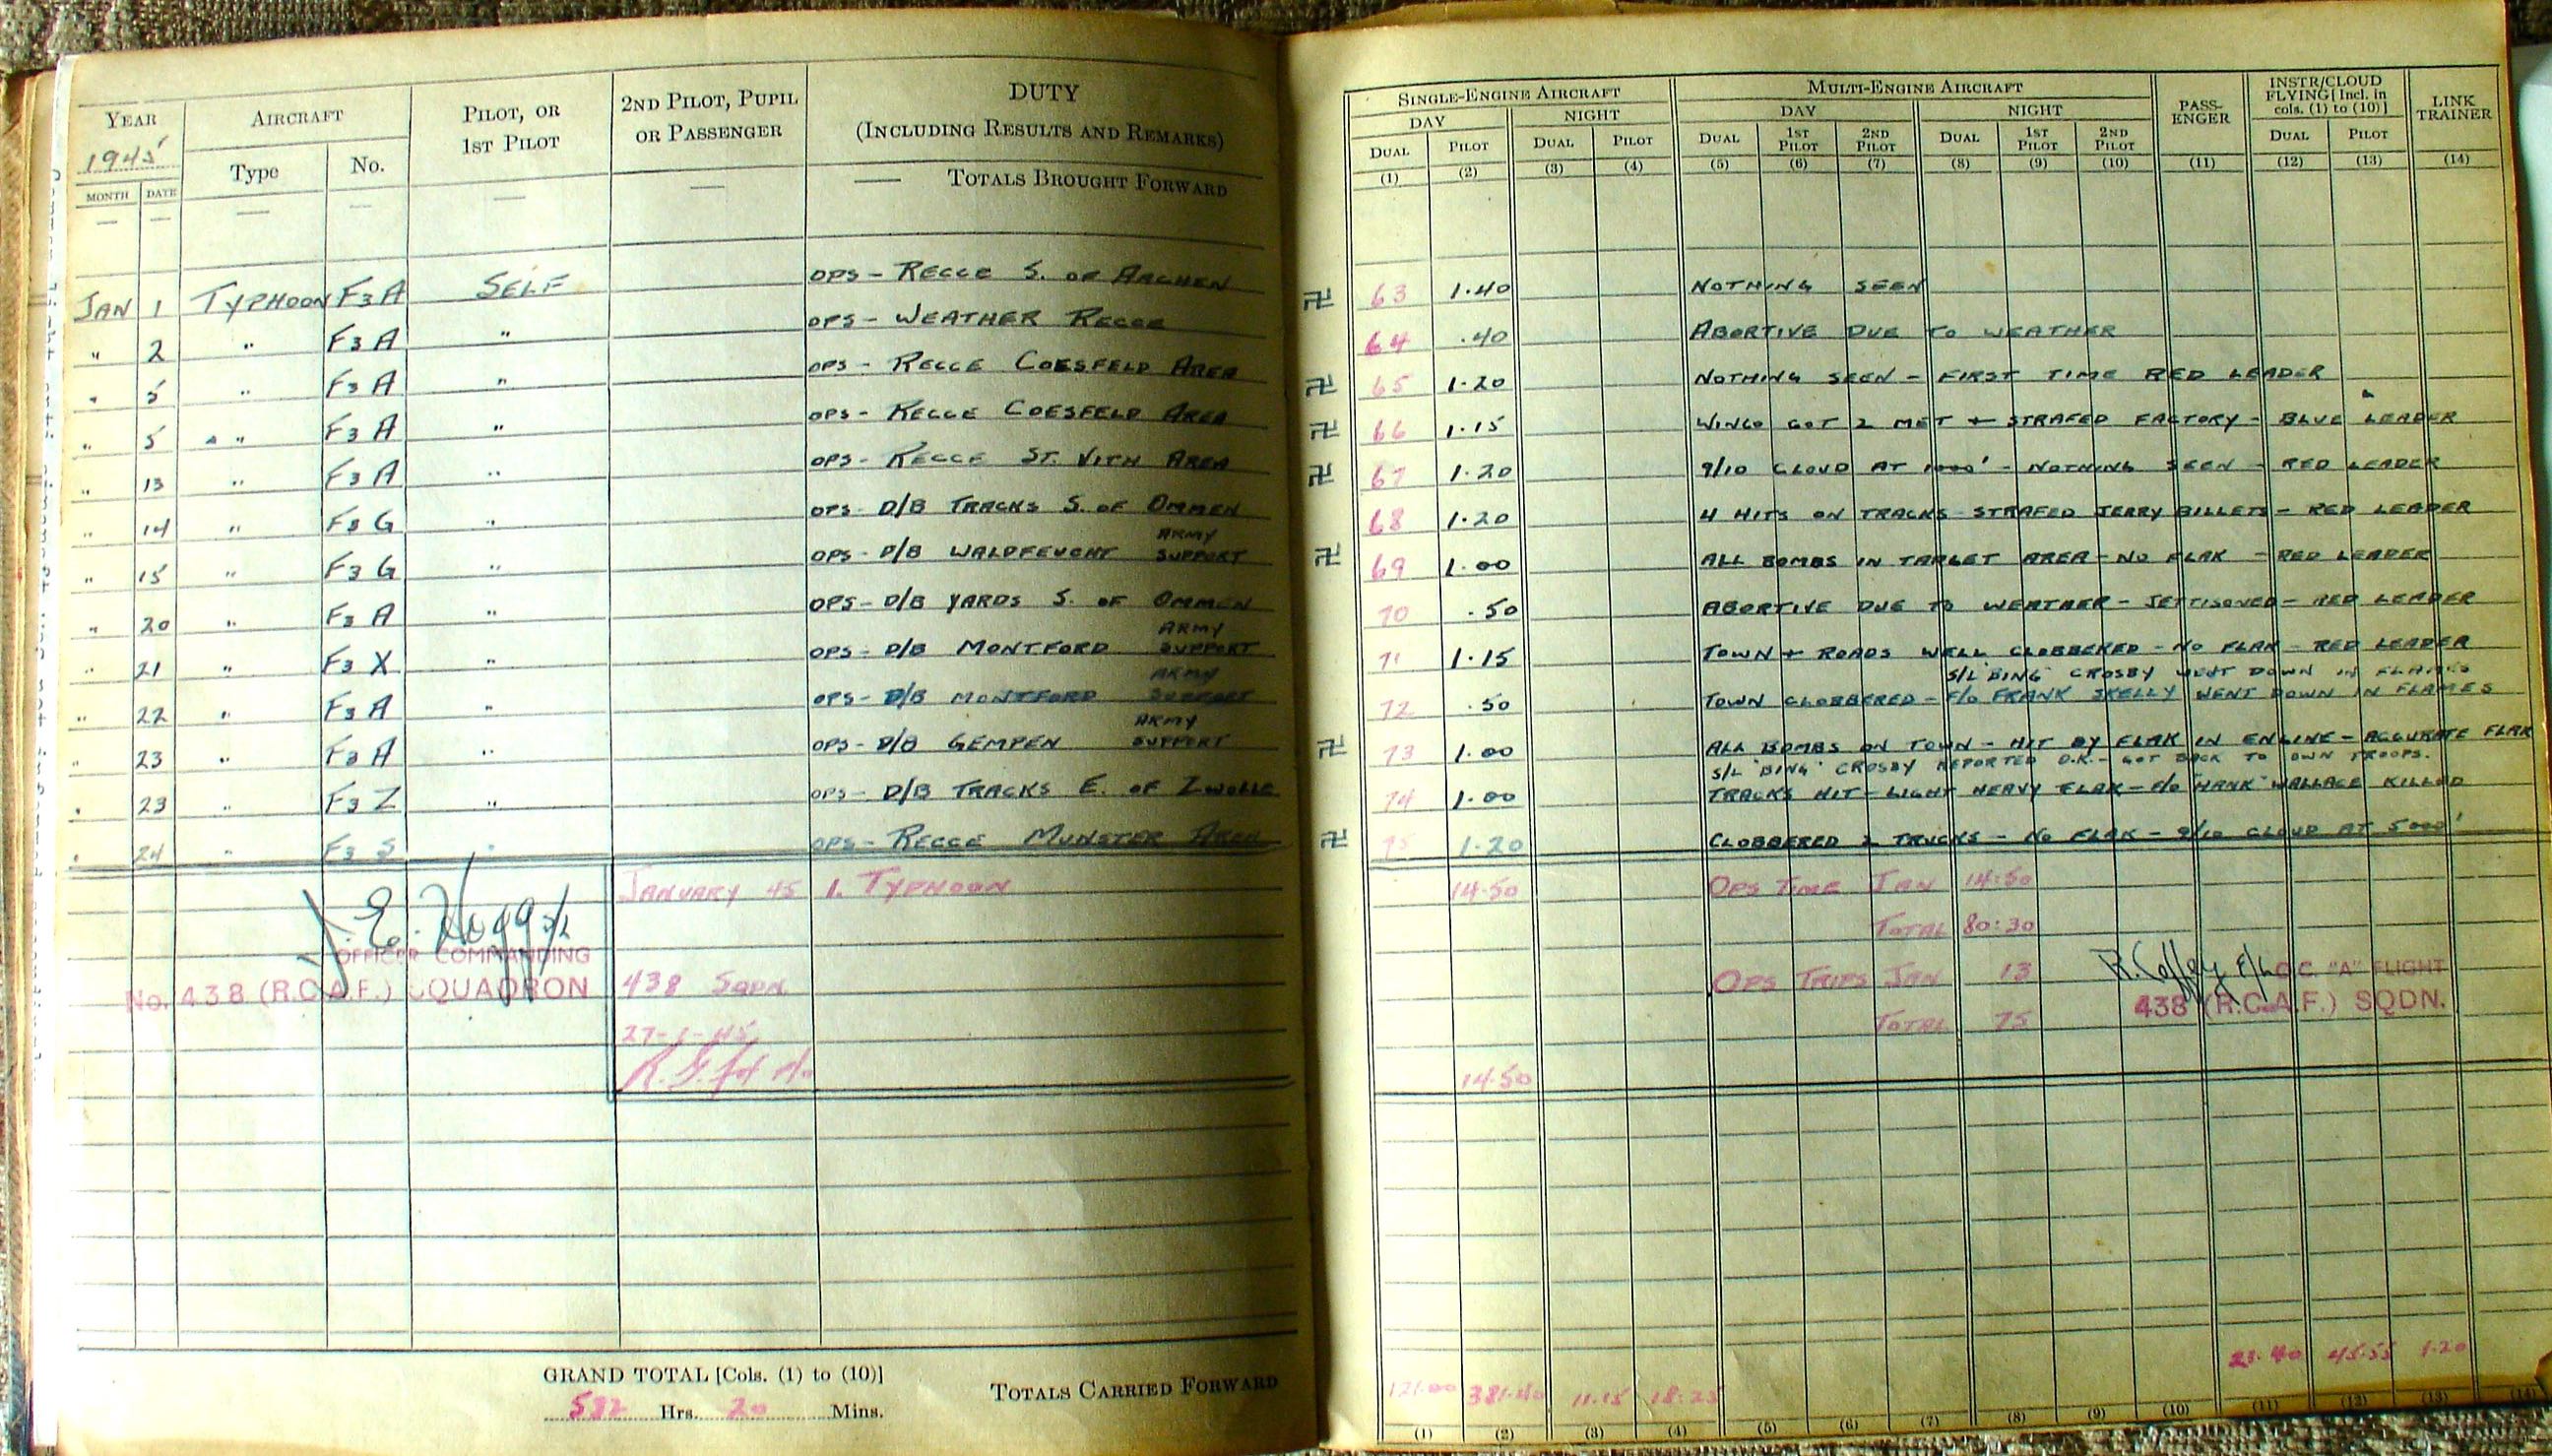 YEAR AIRCRAFT PILOT, OR 1ST PILOT 2ND PILOT, PUPIL OR PASSENGER DUTY (INCLUDING RESULTS AND REMARKS)
1945 Type No.
MONTH DATE
— — — — — — — TOTALS BROUGHT FORWARD
SINGLE-ENGINE AIRCRAFT MULTI-ENGINE AIRCRAFT PASS-ENGER INSTR/CLOUD FLYING [Incl. in cols. (1) to (10)] LINK TRAINER
DAY NIGHT DAY NIGHT
DUAL PILOT DUAL PILOT DUAL 1ST PILOT 2ND PILOT DUAL 1ST PILOT 2ND PILOT DUAL PILOT
(1) (2) (3) (4) (5) (6) (7) (8) (9) (10) (11) (12) (13) (14)
JAN 1 TYPHOON F3A SELF OPS - RECCE S. OF AACHEN 卍 63 1.40 NOTHING SEEN
" 2 " F3A " OPS - WEATHER RECCE 64 .40 ABORTIVE DUE TO WEATHER
" 5 " F3A " OPS - RECCE COESFELD AREA 卍 65 1.20 NOTHING SEEN - FIRST TIME RED LEADER
" 5 " F3A " OPS - RECCE COESFELD AREA 卍 66 1.15 WINGO GOT 2 MET + STRAFED FACTORY - BLUE LEADER
" 13 " F3A " OPS - RECCE ST. VITH AREA 卍 67 1.20 9/10 CLOUD AT 1000' - NOTHING SEEN - RED LEADER
" 14 " F3G " OPS - D/B TRACKS S. OF OMMEN 68 1.20 4 HITS ON TRACKS - STRAFED JERRY BILLETS - RED LEADER
" 15 " F3G " OPS - D/B WALDFEUCHT ARMY SUPPORT 卍 69 1.00 ALL BOMBS IN TARGET AREA - NO FLAK - RED LEADER
" 20 " F3A " OPS - D/B YARDS S. OF OMMEN 70 .50 ABORTIVE DUE TO WEATHER - JETTISONED - RED LEADER
" 21 " F3X " OPS - D/B MONTFORD ARMY SUPPORT 71 1.15 TOWN + ROADS WELL CLOBBERED - NO FLAK - RED LEADER
S/L "BING" CROSBY WENT DOWN IN FLAMES
" 22 " F3A " OPS - D/B MONTFORD ARMY SUPPORT 72 .50 TOWN CLOBBERED - F/O FRANK SKELLY WENT DOWN IN FLAMES
" 23 " F3A " OPS - D/B GEMPEN ARMY SUPPORT 卍 73 1.00 ALL BOMBS ON TOWN - HIT BY FLAK IN ENGINE - ACCURATE FLAK
S/L "BING" CROSBY REPORTED O.K. - GOT BACK TO OWN TROOPS.
" 23 " F3Z " OPS - D/B TRACKS E. OF ZWOLLE 74 1.00 TRACKS HIT - LIGHT HEAVY FLAK - F/O "HANK" WALLACE KILLED
" 24 " F3S " OPS - RECCE MUNSTER AREA 卍 75 1.20 CLOBBERED 2 TRUCKS - NO FLAK - 9/10 CLOUD AT 5000'
JANUARY 45 1. TYPHOON 14.50 OPS TIME JAN 14:50
J. E. Hogg S/L TOTAL 80:30
OFFICER COMMANDING
No. 438 (R.C.A.F.) SQUADRON 438 SQDN. OPS TRIPS JAN 13 F/L O.C. "A" FLIGHT
438 (R.C.A.F.) SQDN.
27-1-45 TOTAL 75
14.50
23.40 45.55 1.20
GRAND TOTAL [Cols. (1) to (10)] TOTALS CARRIED FORWARD 121.00 381.40 11.15 18.25
532 Hrs. 20 Mins.
(1) (2) (3) (4) (5) (6) (7) (8) (9) (10) (11) (12) (13) (14)